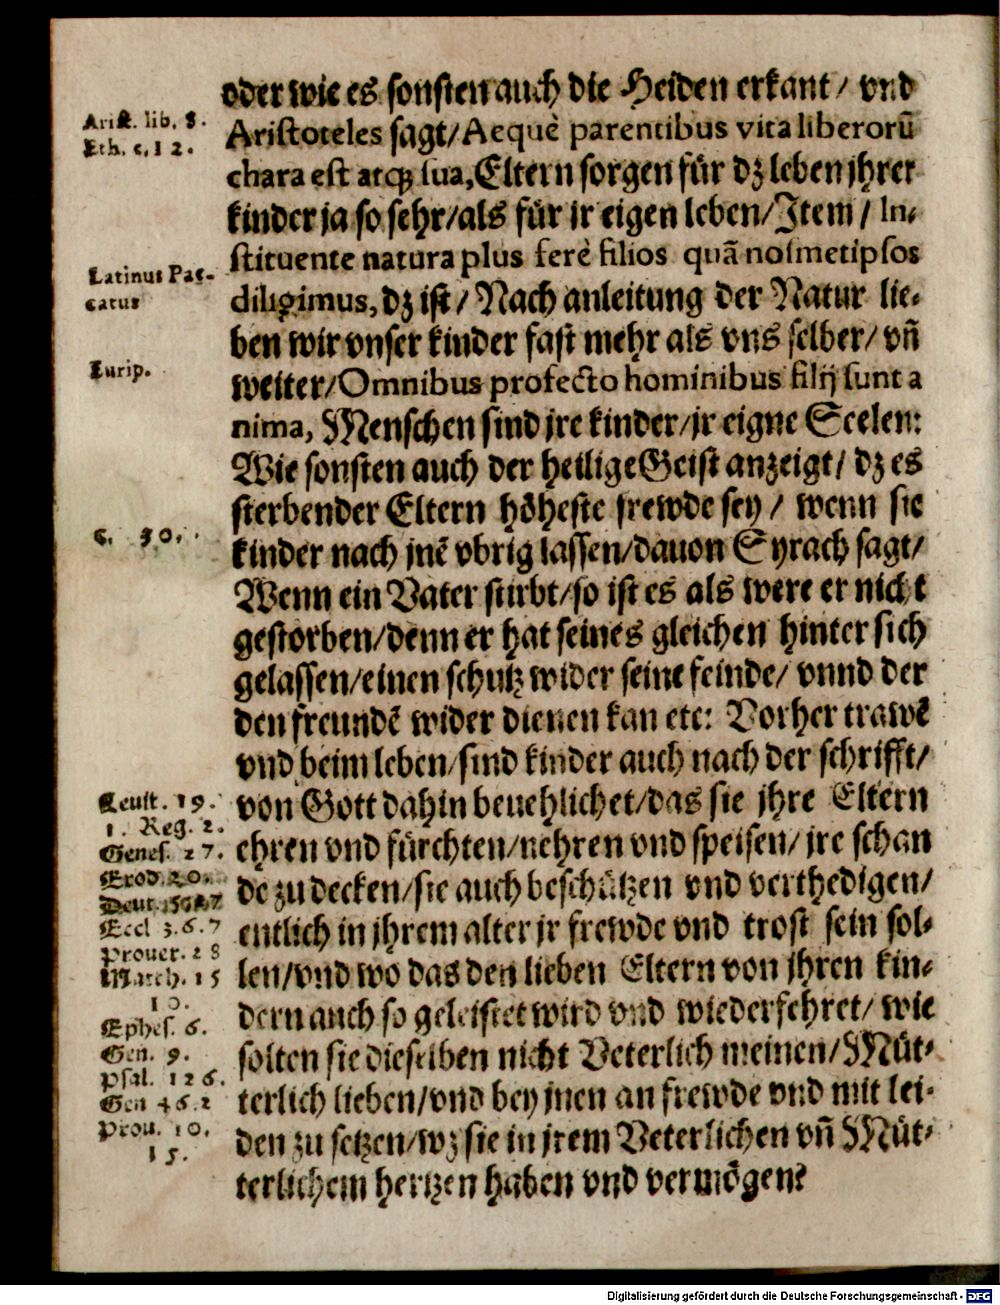 oder wie es sonsten auch die Heiden erkant / vnd
Arist. lib. 8.
Eth. c. 12.
Aristoteles sagt/Aequè parentibus vita liberorũ
chara est atqꝫ sua,Eltern sorgen für dz leben jhrer
kinder ja so sehr/als für jr eigen leben/Item / In-
stituente natura plus ferè filios quã nosmetipsos
Latinus Pac-
catus
diligimus, dz ist / Nach anleitung der Natur lie-
ben wir vnser kinder fast mehr als vns selber/ vñ
Eurip.
weiter/Omnibus profecto hominibus filij sunt a
nima, Menschen sind jre kinder/jr eigne Seelen:
Wie sonsten auch der heilige Geist anzeigt/ dz es
sterbender Eltern höheste frewde sey / wenn sie
c. 30.
kinder nach jnē vbrig lassen/dauon Syrach sagt/
Wenn ein Vater stirbt/so ist es als were er nicht
gestorben/denn er hat seines gleichen hinter sich
gelassen/einen schutz wider seine feinde/ vnnd der
den freundē wider dienen kan etc: Vorher trawē
vnd beim leben/sind kinder auch nach der schrifft/
Leuit. 19.
von Gott dahin beuehlichet/das sie jhre Eltern
1. Reg. 2.
Genes. 27.
ehren vnd fürchten/nehren vnd speisen/ jre schan
Exod. 20.
de zu decken/sie auch beschützen vnd verthedigen/
Deut.
Eccl 3.6.7
entlich in jhrem alter jr frewde vnd trost sein sol-
Prouer. 28
Matth. 15
len/vnd wo das den lieben Eltern von jhren kin-
10.
dern auch so geleistet wird vnd wiederfehret/ wie
Ephes. 6.
Gen. 9.
solten sie dieselben nicht Veterlich meinen/Müt-
Psal. 126.
Gen 46.2
terlich lieben/vnd bey jnen an frewde vnd mit lei-
Prou. 10.
15.
den zu setzen/wz sie in jrem Veterlichen vñ Müt-
terlichem hertzen haben vnd vermögen?
Digitalisierung gefördert durch die Deutsche Forschungsgemeinschaft - DFG